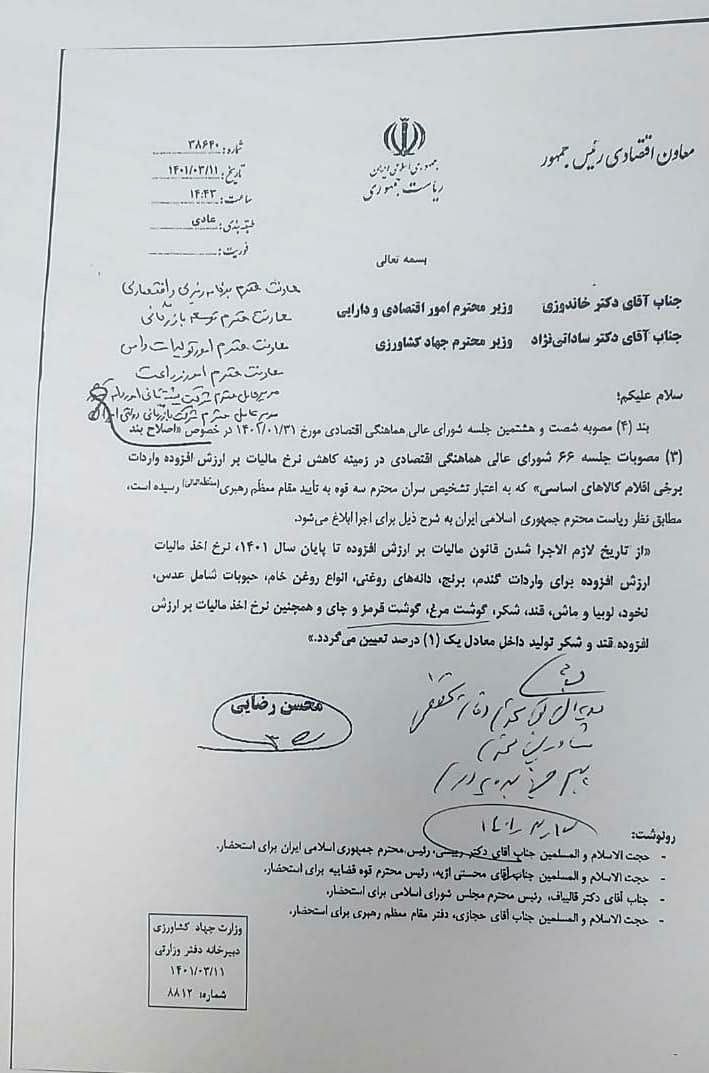 معاون اقتصادی رئیس جمهور
جمهوری اسلامی ایران
ریاست جمهوری
شماره: ۳۸۶۴۰
تاریخ: ۱۴۰۱/۰۳/۱۱
ساعت: ۱۴:۴۳
طبقه بندی: عادی
فوریت:
بسمه تعالی
معاونت محترم برنامه ریزی و اقتصادی
معاونت محترم توسعه بازرگانی
معاونت محترم امور تولیدات دامی
معاونت محترم امور زراعت
مدیرعامل محترم شرکت پشتیبانی امور دام کشور
مدیر عامل محترم شرکت بازرگانی دولتی ایران
جناب آقای دکتر خاندوزی وزیر محترم امور اقتصادی و دارایی
جناب آقای دکتر ساداتی‌نژاد وزیر محترم جهاد کشاورزی
سلام علیکم؛
بند (۴) مصوبه شصت و هشتمین جلسه شورای عالی هماهنگی اقتصادی مورخ ۱۴۰۲/۰۱/۳۱ در خصوص «اصلاح بند
(۳) مصوبات جلسه ۶۶ شورای عالی هماهنگی اقتصادی در زمینه کاهش نرخ مالیات بر ارزش افزوده واردات
برخی اقلام کالاهای اساسی» که به اعتبار تشخیص سران محترم سه قوه به تأیید مقام معظّم رهبری(مدظله‌العالی) رسیده است،
مطابق نظر ریاست محترم جمهوری اسلامی ایران به شرح ذیل برای اجرا ابلاغ می‌شود.
«از تاریخ لازم الاجرا شدن قانون مالیات بر ارزش افزوده تا پایان سال ۱۴۰۱، نرخ اخذ مالیات
ارزش افزوده برای واردات گندم، برنج، دانه‌های روغنی، انواع روغن خام، حبوبات شامل عدس،
نخود، لوبیا و ماش، قند، شکر، گوشت مرغ، گوشت قرمز و چای و همچنین نرخ اخذ مالیات بر ارزش
افزوده قند و شکر تولید داخل معادل یک (۱) درصد تعیین می‌گردد.»
محسن رضایی
رونوشت:
- حجت الاسلام و المسلمین جناب آقای دکتر رییسی، رئیس محترم جمهوری اسلامی ایران برای استحضار.
- حجت الاسلام و المسلمین جناب آقای محسنی اژیه، رئیس محترم قوه قضاییه برای استحضار.
- جناب آقای دکتر قالیباف، رئیس محترم مجلس شورای اسلامی برای استحضار.
- حجت الاسلام و المسلمین جناب آقای حجازی، دفتر مقام معظم رهبری برای استحضار.
وزارت جهاد کشاورزی
دبیرخانه دفتر وزارتی
۱۴۰۱/۰۳/۱۱
شماره: ۸۸۱۲